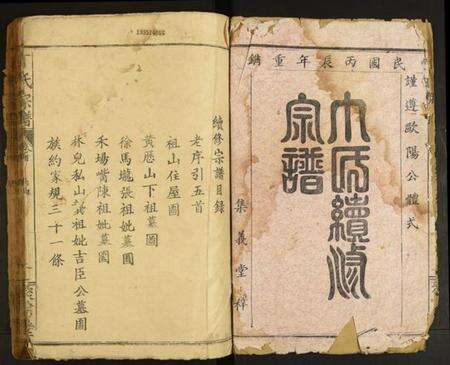 民國丙辰年重鐫
謹遵歐陽公體式
氏續修
宗譜
集義堂梓
續修宗譜目錄
老序引五首
祖山住屋圖
黃應山下祖墓圖
徐馬壠張祖妣墓圖
禾場嘴陳祖妣墓圖
林兒私山龔祖妣吉臣公墓圖
族約家規三十一條
氏宗譜